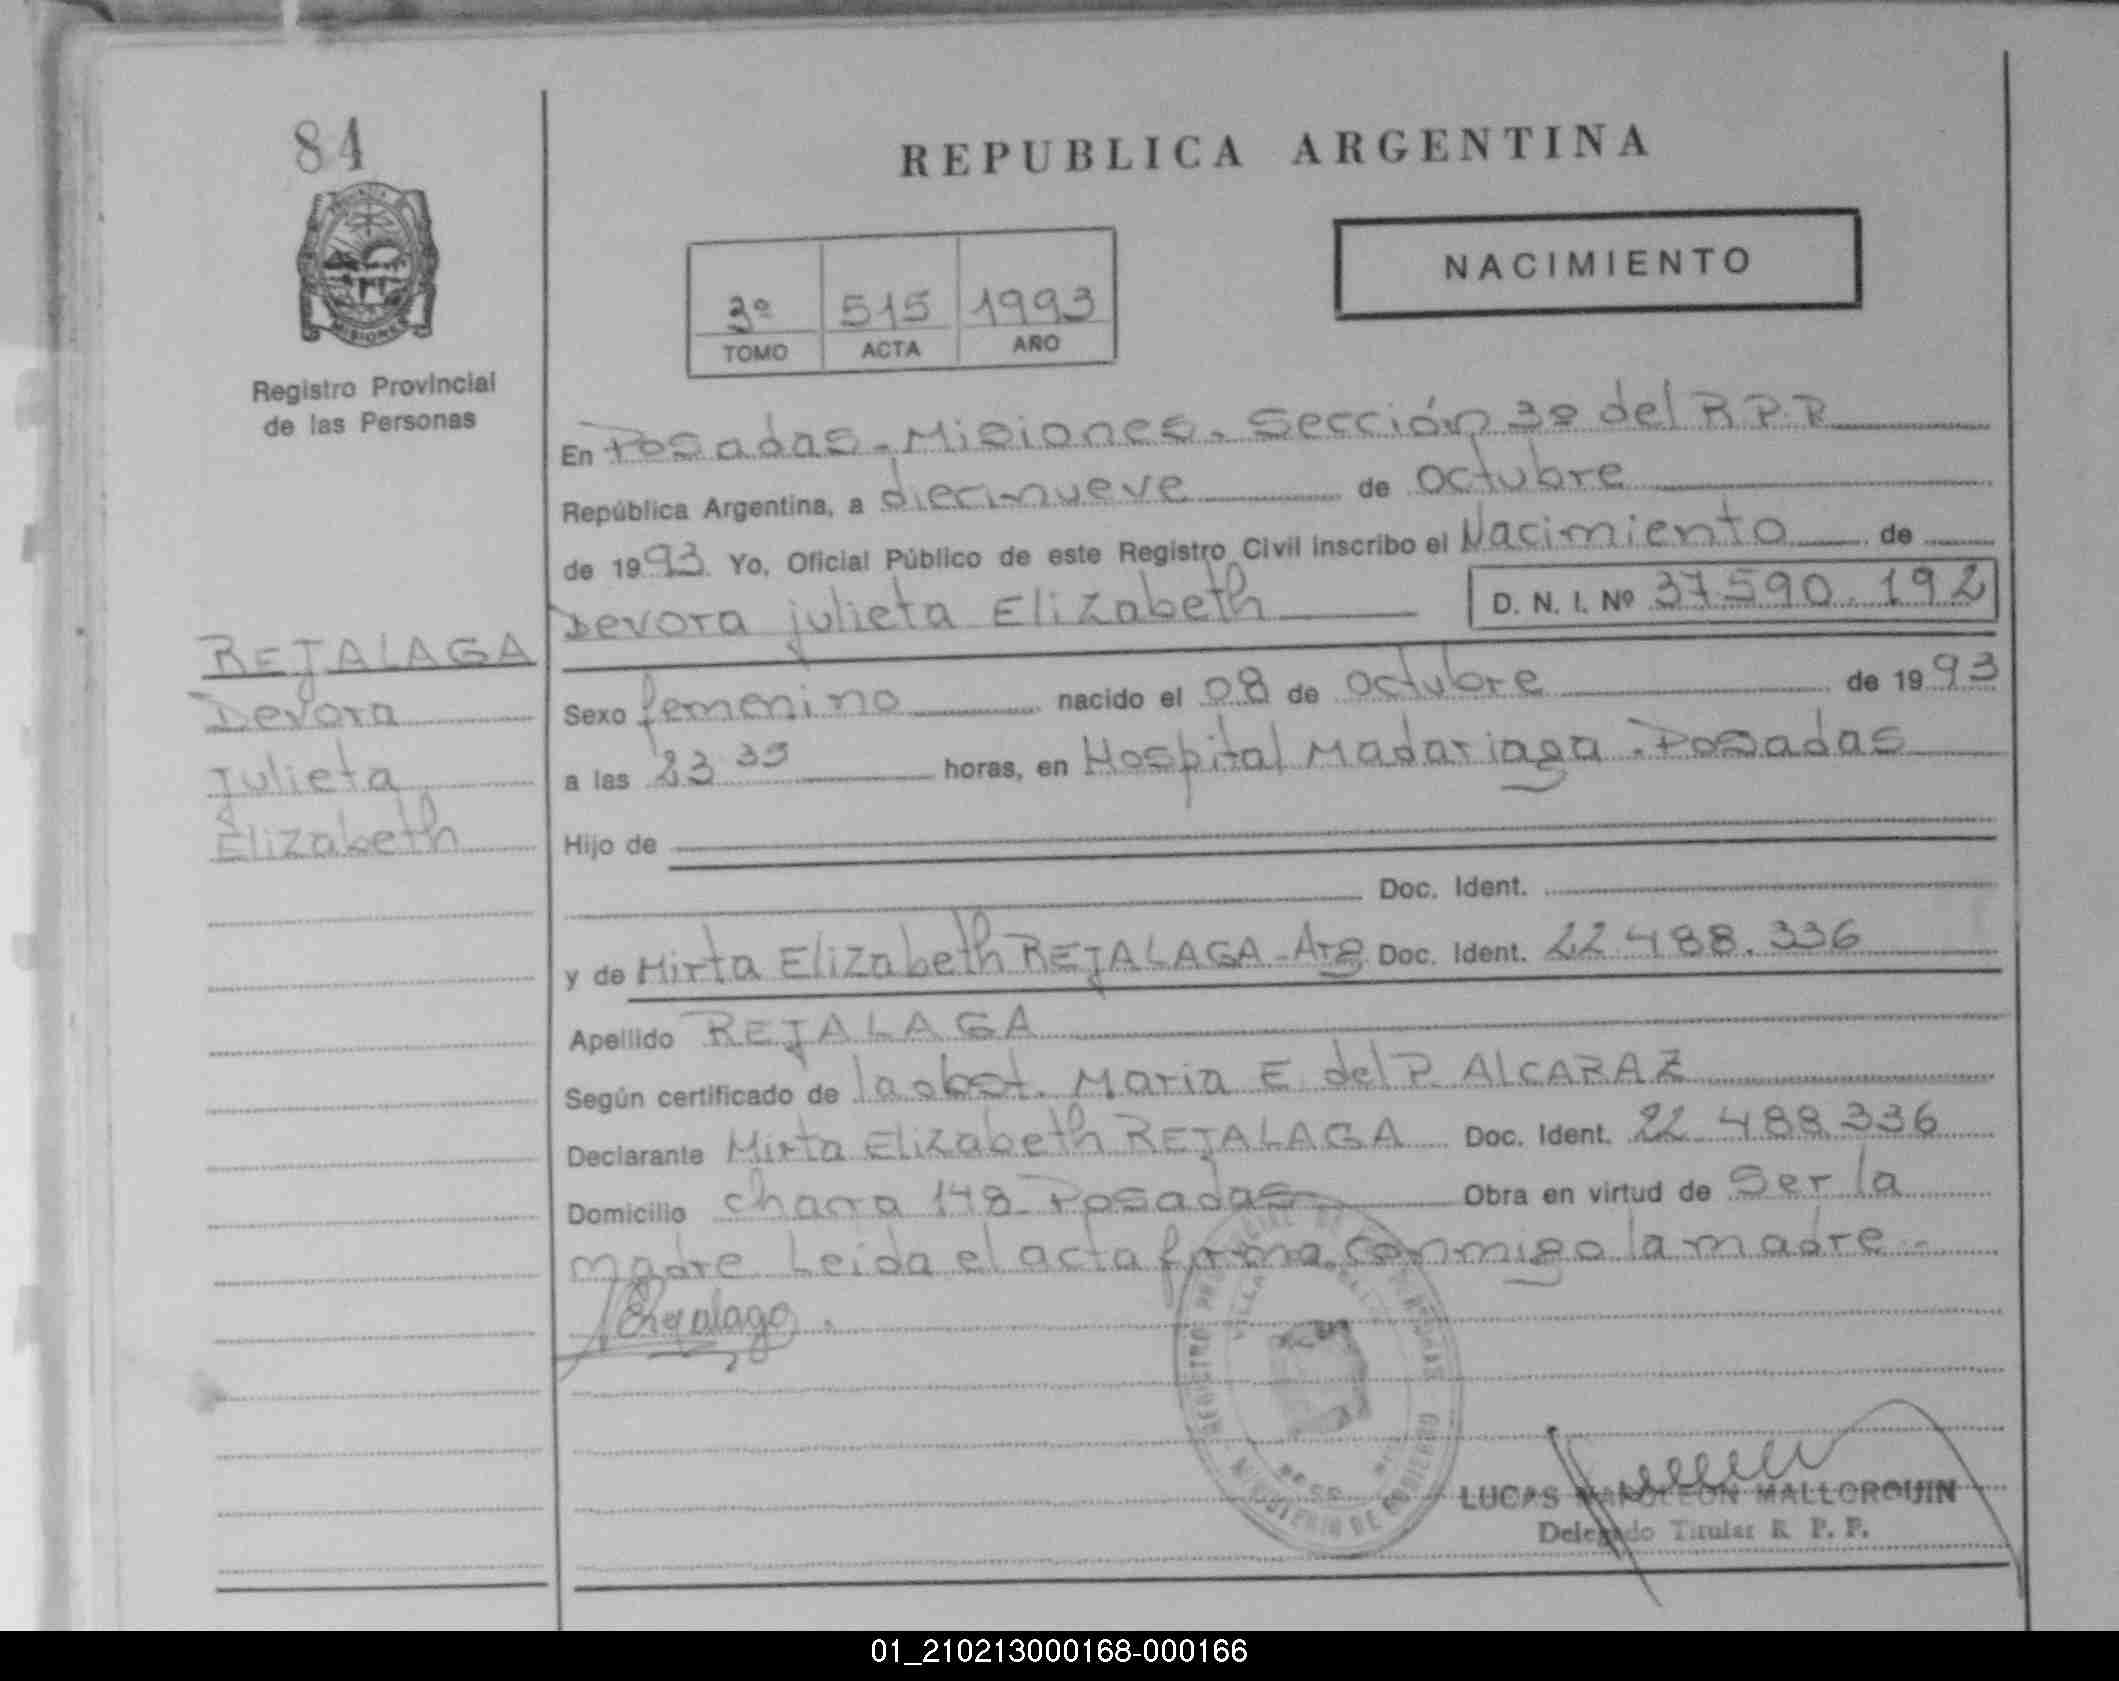 84
REPUBLICA ARGENTINA
NACIMIENTO
3º 515 1993
TOMO ACTA AÑO
MISIONES
Registro Provincial
de las Personas
En Posadas-Misiones. Sección 3º del R.P.P
República Argentina, a diecinueve de octubre
de 1993 Yo, Oficial Público de este Registro Civil inscribo el Nacimiento de
Devora julieta Elizabeth D. N. I. Nº 37590.192
REJALAGA
Devora
Julieta
Elizabeth
Sexo femenino nacido el 08 de octubre de 1993
a las 23 35 horas, en Hospital Madariaga. Posadas
Hijo de
Doc. Ident.
y de Mirta Elizabeth REJALAGA-Arg Doc. Ident. 22 488.336
Apellido REJALAGA
Según certificado de la obst. Maria E. del P. ALCARAZ
Declarante Mirta Elizabeth REJALAGA Doc. Ident. 22 488.336
Domicilio 148 Posadas Obra en virtud de Ser la
madre Leida el acta firma conmigo la madre.-
REGISTRO PROVINCIAL DE LAS PERSONAS
MINISTERIO DE GOBIERNO
LUCAS NAPOLEON MALLORQUIN
Delegado Titular R. P. P.
01_210213000168-000166